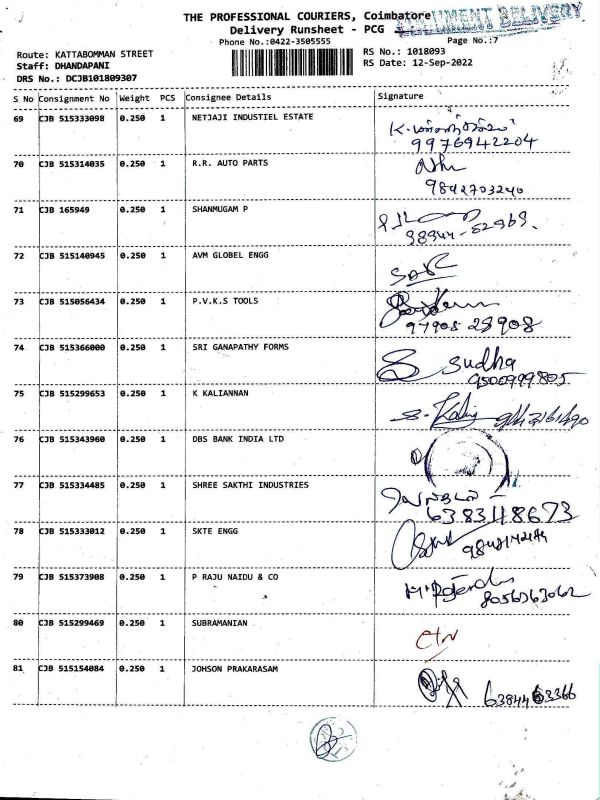 THE PROFESSIONAL COURIERS, Coimbatore
DOCUMENT DELIVERY
Delivery Runsheet - PCG
Phone No.:0422-3505555 Page No.:7
Route: KATTABOMMAN STREET RS No.: 1018093
Staff: DHANDAPANI RS Date: 12-Sep-2022
DRS No.: DCJB101809307
S No Consignment No Weight PCS Consignee Details Signature
69 CJB 515333098 0.250 1 NETJAJI INDUSTIEL ESTATE
9976942204
70 CJB 515314035 0.250 1 R.R. AUTO PARTS
9842703240
71 CJB 165949 0.250 1 SHANMUGAM P
72 CJB 515140945 0.250 1 AVM GLOBEL ENGG
73 CJB 515056434 0.250 1 P.V.K.S TOOLS
97908 28908
74 CJB 515366000 0.250 1 SRI GANAPATHY FORMS
Sudha
9500999805
75 CJB 515299653 0.250 1 K KALIANNAN
76 CJB 515343960 0.250 1 DBS BANK INDIA LTD
77 CJB 515334485 0.250 1 SHREE SAKTHI INDUSTRIES
6383118673
78 CJB 515333012 0.250 1 SKTE ENGG
79 CJB 515373908 0.250 1 P RAJU NAIDU & CO
8056763062
80 CJB 515299469 0.250 1 SUBRAMANIAN
81 CJB 515154084 0.250 1 JOHSON PRAKARASAM
6384463366